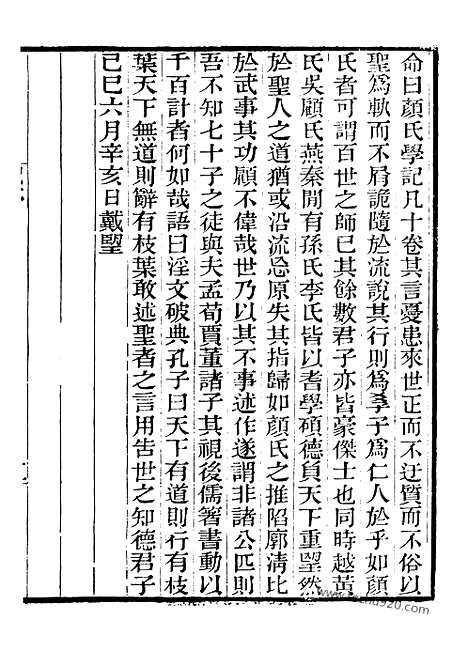 命曰顏氏學記凡十卷其言憂患來世正而不迂質而不俗以
聖爲軌而不屑詭隨於流說其行則爲孝子爲仁人於乎如顏
氏者可謂百世之師已其餘數君子亦皆豪傑士也同時越黃
氏吳顧氏燕秦閒有孫氏李氏皆以耆學碩德負天下重朢然
於聖人之道猶或沿流忘原失其指歸如顏氏之推陷廓淸比
於武事其功顧不偉哉世乃以其不事述作遂謂非諸公匹則
吾不知七十子之徒與夫孟荀賈董諸子其視後儒箸書動以
千百計者何如哉語曰淫文破典孔子曰天下有道則行有枝
葉天下無道則辭有枝葉敢述聖者之言用告世之知德君子
己巳六月辛亥日戴朢